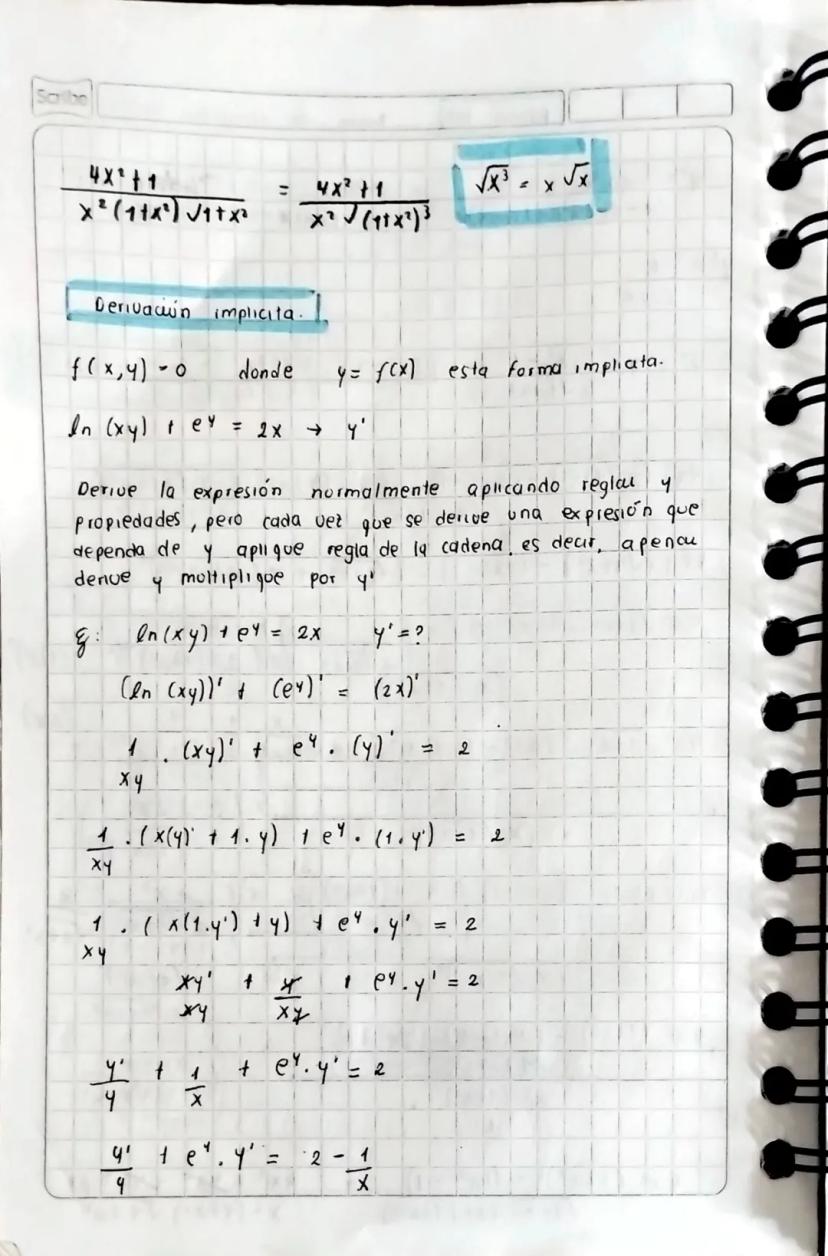 Scribe
4x² + 1 / x² (1+x²) √1+x² = 4x² + 1 / x² √(1+x²)³ √x³ = x √x
Derivación implicita.
f(x,y) = 0 donde y = f(x) esta forma implicata.
ln (xy) + e^y = 2x → y'
Derive la expresión normalmente aplicando reglas y
propiedades, pero cada vez que se derive una expresión que
dependa de y aplique regla de la cadena, es decir, apenas
derive y multiplique por y'
Ej: ln(xy) + e^y = 2x y' = ?
(ln (xy))' + (e^y)' = (2x)'
1/xy . (xy)' + e^y . (y)' = 2
1/xy . (x(y)' + 1. y) + e^y . (1. y') = 2
1/xy . ( x(1.y') + y) + e^y . y' = 2
xy'/xy + y/xy + e^y . y' = 2
y'/y + 1/x + e^y . y' = 2
y'/y + e^y . y' = 2 - 1/x